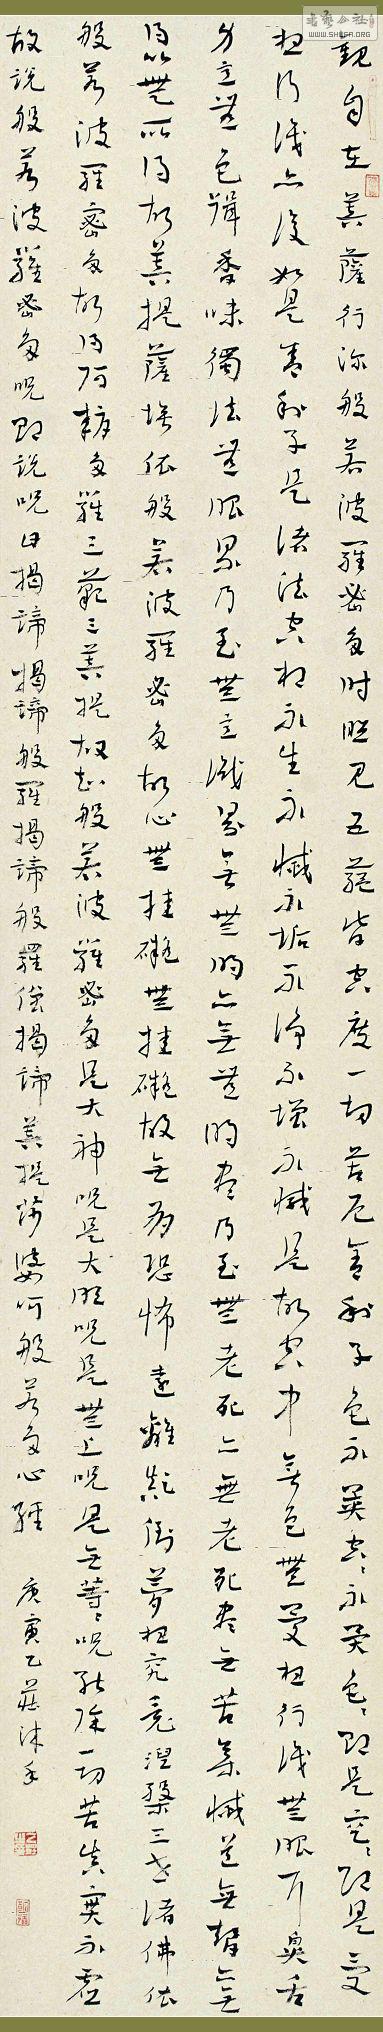 觀自在菩薩行深般若波羅蜜多時照見五蘊皆空度一切苦厄舍利子色不異空〻不異色〻即是空〻即是受
想行識亦復如是舍利子是諸法空相不生不滅不垢不淨不增不減是故空中無色無受想行識無眼耳鼻舌
身意無色聲香味觸法無眼界乃至無意識界無無明亦無無明盡乃至無老死亦無老死盡無苦集滅道無智亦無
得以無所得故菩提薩埵依般若波羅蜜多故心無挂礙無挂礙故無有恐怖遠離顛倒夢想究竟涅槃三世諸佛依
般若波羅密多故得阿耨多羅三藐三菩提故知般若波羅密多是大神呪是大明呪是無上呪是無等〻呪能除一切苦真實不虛
故說般若波羅密多呪即說呪曰揭諦揭諦般羅揭諦般羅僧揭諦菩提薩婆呵般若多心經
庚寅乙莊沐手
WWW.SHUFA.ORG